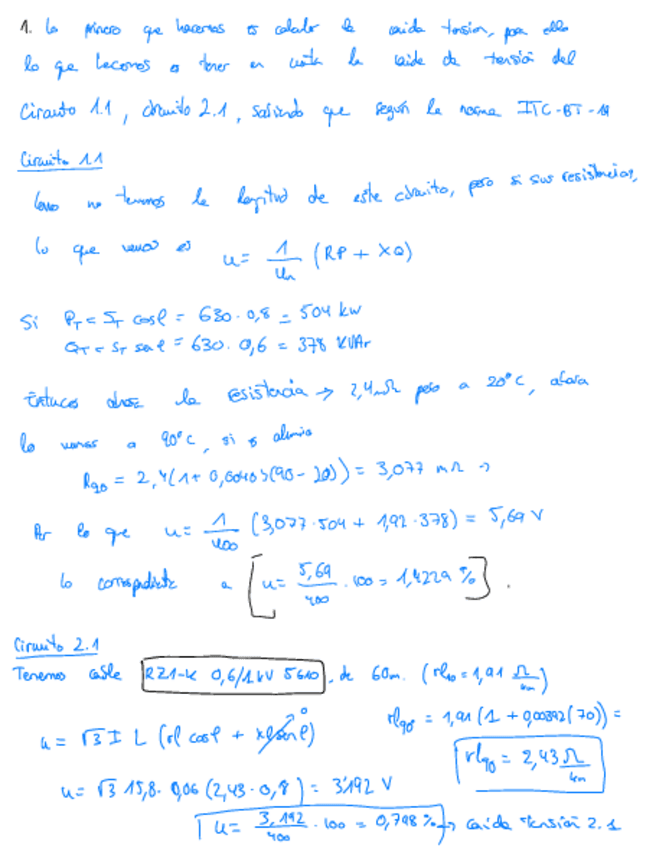 1. Lo primero que hacemos es calcular la caida tension, para ello
lo que hacemos es tener en cuenta la caida de tensión del
Circuito 1.1, circuito 2.1, sabiendo que según la norma ITC-BT-19
Circuito 1.1
Como no tenemos la longitud de este circuito, pero si sus resistencias,
lo que vemos es u = 1/Un (RP + XQ)
Si P_T = S_T cosφ = 630 · 0,8 = 504 kW
Q_T = S_T senφ = 630 · 0,6 = 378 KVAr
Entonces la resistencia → 2,4 mΩ pero a 20°C, ahora
lo vemos a 90°C, si es aluminio
R90 = 2,4(1 + 0,00403(90 - 20)) = 3,077 mΩ →
Por lo que u = 1/400 (3,077 · 504 + 1,92 · 378) = 5,69 V
lo correspondiente a [u = 5,69/400 · 100 = 1,4229 %].
Circuito 2.1
Tenemos cable RZ1-K 0,6/1kV 5G10, de 60m. (rl20 = 1,91 Ω/km)
rl90 = 1,91 (1 + 0,00392(70)) =
u = √3 I L (rl cosφ + xl senφ) 0
rl90 = 2,43 Ω/km
u = √3 15,8 · 0,06 (2,43 · 0,8) = 3,192 V
u = 3,192/400 · 100 = 0,798 % → caida tensión 2.1